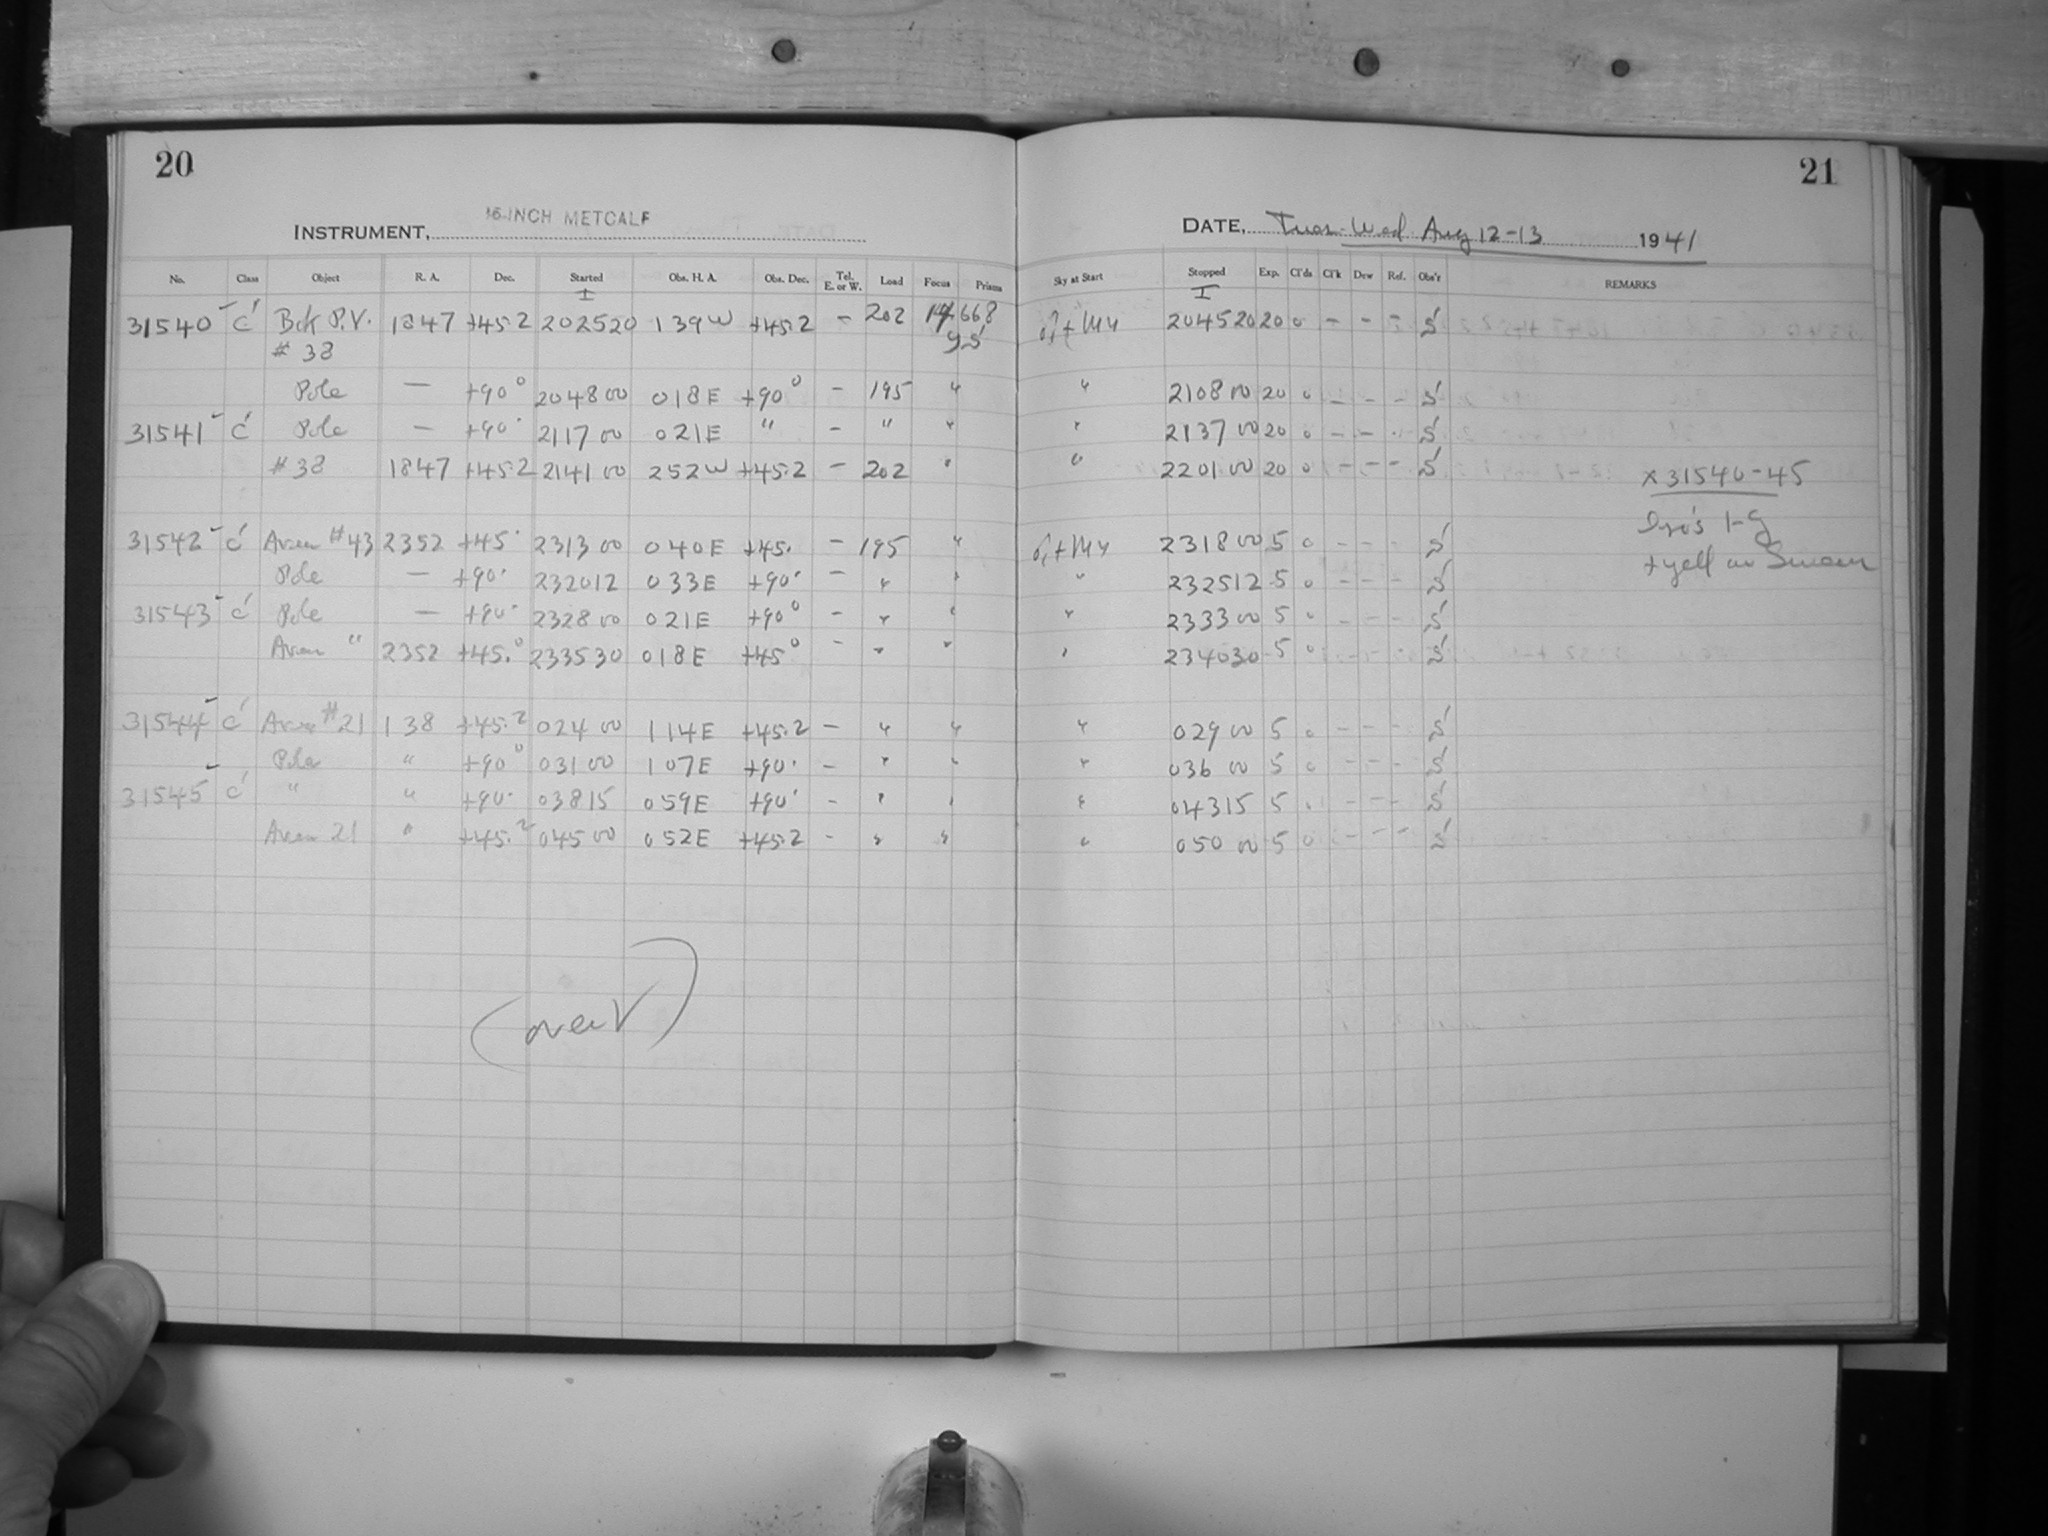 20
21
INSTRUMENT, 16-INCH METCALF
DATE, Tues-Wed Aug 12-13 1941
No. Class Object R. A. Dec. Started Obs. H. A. Obs. Dec. Tel. E. or W. Load Focus Prisms Sky at Start Stopped Exp. Cl'ds Cl'k Drw Ref. Obs'r REMARKS
I I
31540 C' 1847 +45.2 202520 139W +45.2 - 202 668 204520 20 0 - - - S'
# 38
Pole — +90° 204800 018E +90° - 195 " " 210800 20 0 - - - S'
31541 C' Pole — +90° 211700 021E " - " " " 213700 20 0 - - - S'
#38 1847 +45.2 214100 252W +45.2 - 202 " " 220100 20 0 - - - S'
x31540-45
31542 C' #43 2352 +45° 231300 040E +45° - 195 " 231800 5 0 - - - S'
Pole — +90° 232012 033E +90° - " " " 232512 5 0 - - - S'
31543 C' Pole — +90° 232800 021E +90° - " " " 233300 5 0 - - - S'
" 2352 +45° 233530 018E +45° - " " " 234030 5 0 - - - S'
31544 C' #21 138 +45.2 02400 114E +45.2 - " " " 02900 5 0 - - - S'
Pole " +90° 03100 107E +90° - " " " 03600 5 0 - - - S'
31545 C' " " +90° 03815 059E +90° - " " " 04315 5 0 - - - S'
21 " +45.2 04500 052E +45.2 - " " " 05000 5 0 - - - S'
(over)